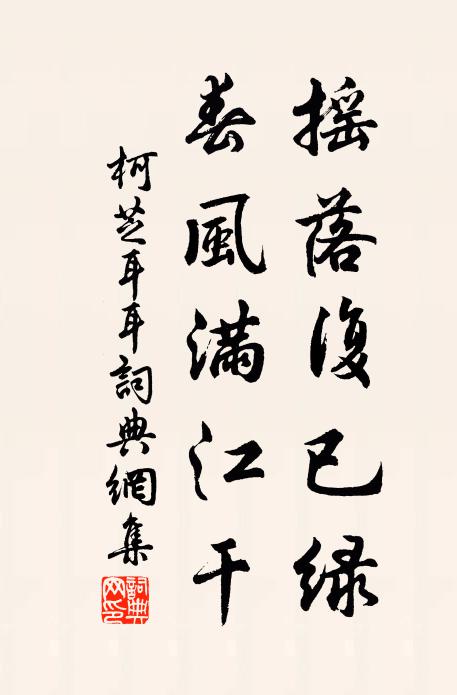 摇落復已緑
春風滿江干
柯芝耳耳詞典網集
詞典网印